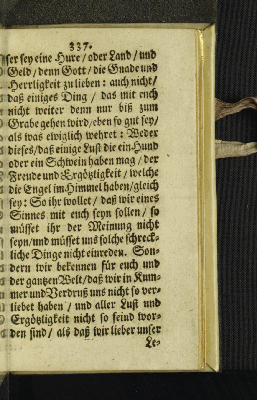 337.
ser sey eine Hure / oder Land / und
Geld / denn Gott / die Gnade und
Herrligkeit zu lieben: auch nicht /
daß einiges Ding / das mit euch
nicht weiter denn nur biß zum
Grabe gehen wird / eben so gut sey /
als was ewiglich wehret: Weder
dieses / daß einige Lust die ein Hund
oder ein Schwein haben mag / der
Freude und Ergötzligkeit / welche
die Engel im Himmel haben / gleich
sey: So ihr wollet / daß wir eines
Sinnes mit euch seyn sollen / so
müsset ihr der Meinung nicht
seyn / und müsset uns solche schreck-
liche Dinge nicht einreden. Son-
dern wir bekennen für euch und
der gantzen Welt / daß wir in Kum-
mer und Verdruß uns nicht so ver-
liebet haben / und aller Lust und
Ergötzligkeit nicht so feind wor-
den sind / als daß wir lieber unser
Le-